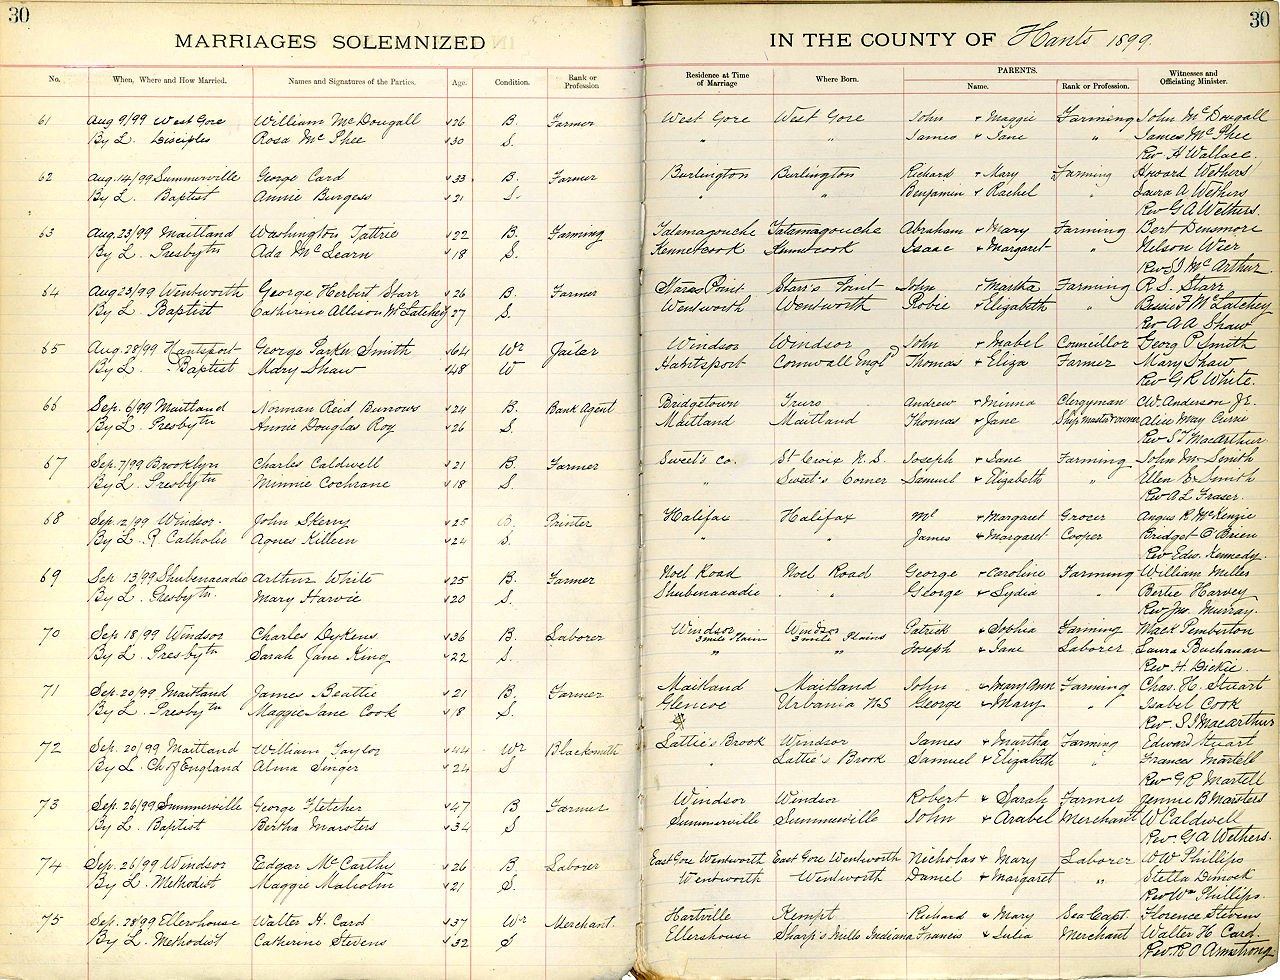 30
30
MARRIAGES SOLEMNIZED
IN THE COUNTY OF Hants 1899.
No. When, Where and How Married. Names and Signatures of the Parties. Age. Condition. Rank or Profession Residence at Time of Marriage Where Born. PARENTS. Name. Rank or Profession. Witnesses and Officiating Minister.
61 Aug 9/99 West Gore William McDougall 26 B. Farmer West Gore West Gore John & Maggie Farming John McDougall
By L. Disciples Rosa McPhee 30 S. " " James & Jane " James McPhee
Rev H Wallace.
62 Aug. 14/99 Summerville George Card 33 B. Farmer Burlington Burlington Richard & Mary Farming Howard Wethers
By L. Baptist Annie Burgess 21 S. " " Benjamin & Rachel Laura A Wethers
Rev G A Wethers.
63 Aug. 23/99 Maitland Washington Tattrie 22 B. Farming Tatemagouche Tatemagouche Abraham & Mary Farming Bert Densmore
By L. Presbytn Ada McLearn 18 S. Kennetcook Kennetcook Isaac & Margaret " Nelson Wier
Rev S J McArthur
64 Aug 23/99 Wentworth George Herbert Starr 26 B. Farmer Stares Point Starr's Point John & Martha Farming R. S. Starr
By L. Baptist Catherine Allison McLatchey 27 S. Wentworth Wentworth Robie & Elizabeth " Bessie F McLatchey
Rev A A Shaw
65 Aug. 28/99 Hantsport George Parker Smith 64 Wr Jailer Windsor Windsor John & Mabel Councillor Georg P Smith
By L. Baptist Mary Shaw 48 W Hantsport Cornwall Engld Thomas & Eliza Farmer Mary Shaw
Rev G R White.
66 Sep. 6/99 Maitland Norman Reid Burrows 24 B. Bank Agent Bridgetown Truro Andrew & Minna Clergyman W. Anderson J.E.
By L. Presbytn Annie Douglas Roy 26 S. Maitland Maitland Thomas & Jane Ship master & owner Alice May Currie
Rev S J Macarthur
67 Sep. 7/99 Brooklyn Charles Caldwell 21 B. Farmer Sweet's Co. St Croix N.S. Joseph & Jane Farming John M Smith
By L. Presbytn Minnie Cochrane 18 S. " Sweet's Corner Samuel & Elizabeth " Ellen E Smith
Rev A L Fraser.
68 Sep. 12/99 Windsor. John Skerry 25 B. Painter Halifax Halifax Ml & Margaret Grocer Angus R McKenzie
By L. R. Catholic Agnes Killeen 24 S. " " James & Margaret Cooper Bridget O'Brien
Rev Edw. Kennedy.
69 Sep 13/99 Shubenacadie Arthur White 25 B. Farmer Noel Road Noel Road George & Caroline Farming William Miller
By L. Presbytn. Mary Harvie 20 S. Shubenacadie " " George & Lydia " Bertie Harvey
Rev Jno. Murray.
70 Sep 18/99 Windsor Charles Dykens 36 B. Laborer Windsor 3 mile Plain Windsor 3 mile Plains Patrick & Sophia Farming Mack Pemberton
By L. Presbytn Sarah Jane King 22 S. " " Joseph & Jane Laborer Laura Buchanan
Rev. H. Dickie.
71 Sep. 20/99 Maitland James Beattie 21 B. Farmer Maitland Maitland John & Mary Ann Farming Chas. H. Stuart
By L. Presbytn Maggie Jane Cook 18 S. Glencoe Urbania N.S George & Mary " Isabel Cook
Rev. S. J Macarthur
72 Sep. 20/99 Maitland William Taylor 44 Wr Blacksmith Lattie's Brook Windsor James & Martha Farming Edward Stuart
By L. Ch of England Alma Singer 24 S " Lattie's Brook Samuel & Elizabeth " Frances Martell
Rev G R Martell
73 Sep. 26/99 Summerville George Fletcher 47 B Farmer Windsor Windsor Robert & Sarah Farmer Jennie B Marsters
By L. Baptist Bertha Marsters 34 S Summerville Summerville John & Arabel Merchant W Caldwell
Rev. G A Wethers.
74 Sep. 26/99 Windsor Edgar McCarthy 26 B. Laborer East Gore Wentworth East Gore Wentworth Nicholas & Mary Laborer W W Phillips
By L. Methodist Maggie Malcolm 21 S. Wentworth Wentworth Daniel & Margaret " Stella Dimock
Rev Wm Phillips.
75 Sep. 28/99 Ellershouse Walter H. Card 37 Wr Merchant. Hartville Kempt Richard & Mary Sea Capt. Florence Stevens
By L. Methodist Catherine Stevens 32 S Ellershouse Sharp's Mills Indiana Francis & Julia Merchant Walter H Card.
Rev. R O Armstrong